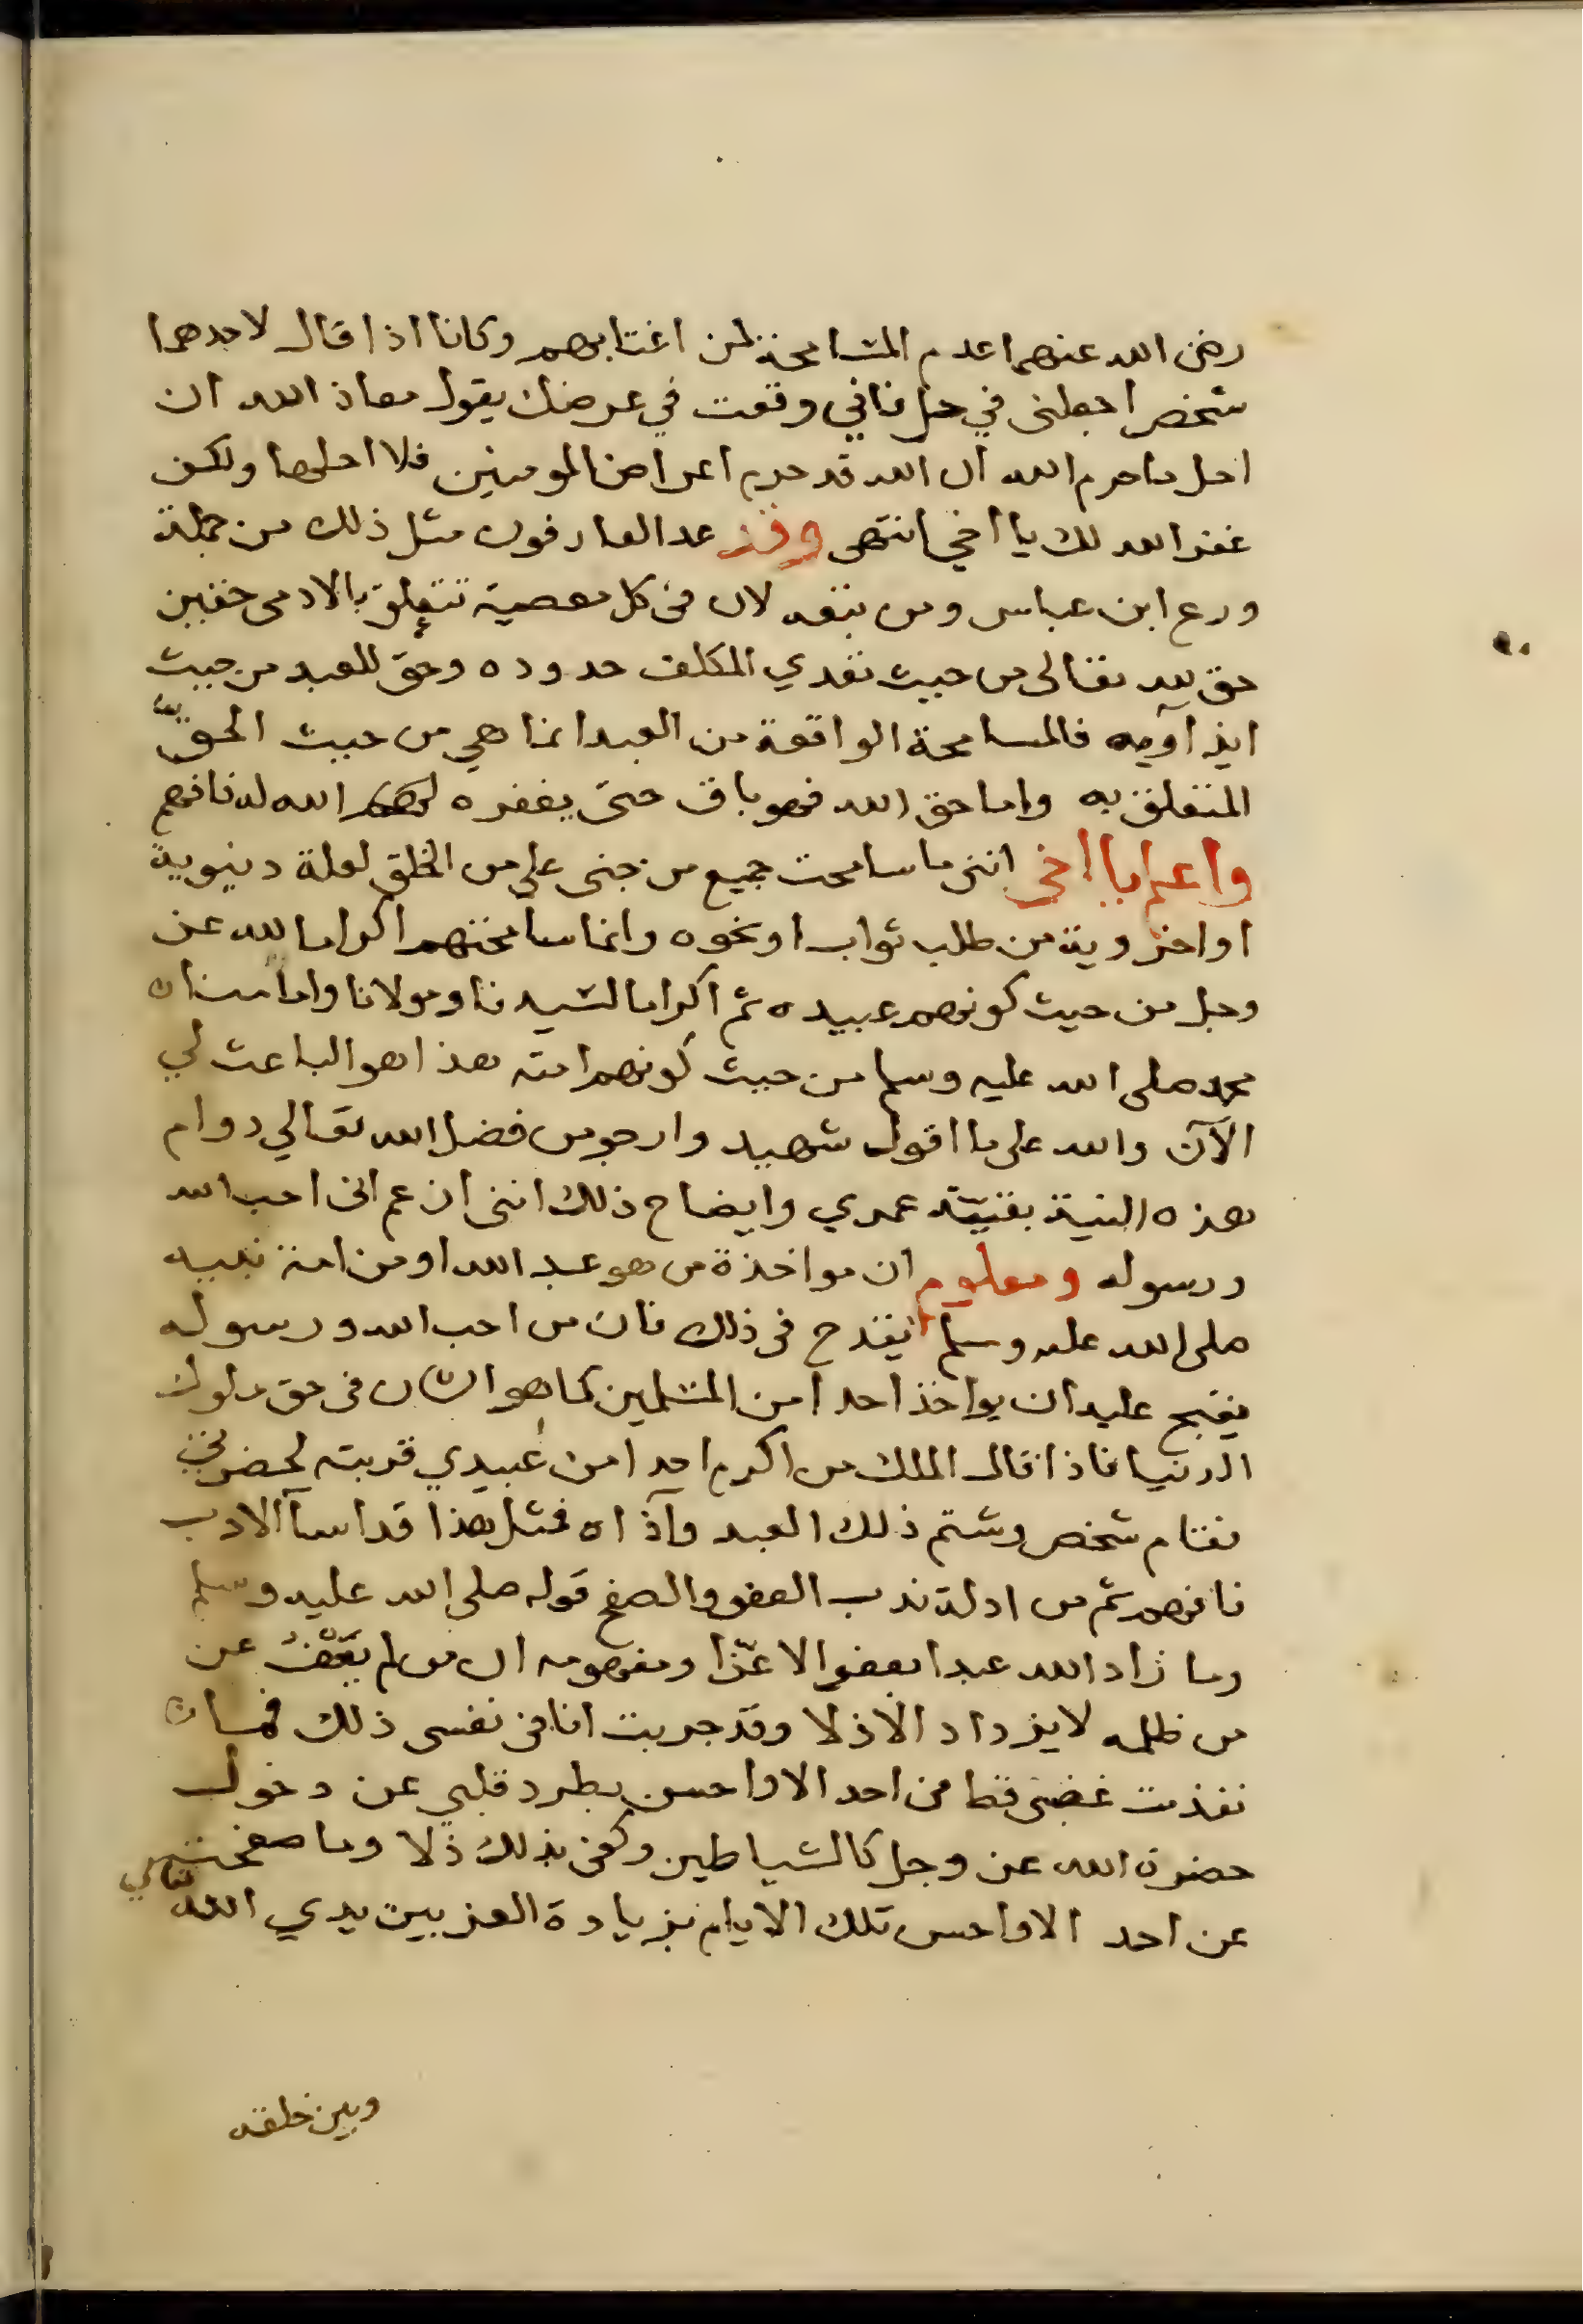 رضى الله عنهما عدم المسامحة لمن اغتابهم وكانا اذا قال لاحدهما
شخص اجعلنى في حل فاني وقعت في عرضك يقول معاذ الله ان
احل ما حرم الله ان الله قد حرم اعراض المومنين فلا احلها ولكن
غفر الله لك يا اخي انتهى وقد عد العارفون مثل ذلك من جملة
ورع ابن عباس ومن تبعه لان فى كل معصية تتعلق بالادمى حقين
حق لله تعالى من حيث تعدي المكلف حدوده وحق للعبد من حيث
ايذآوه فالمسامحة الواقعة من العبد انما هي من حيث الحق
المتعلق به واما حق الله فهو باق حتى يغفره الله له فافهم
واعلم يا اخى اننى ما سامحت جميع من جنى على من الخلق لعلة دنيوية
او اخروية من طلب ثواب او نحوه وانما سامحتهم اكراما لله عز
وجل من حيث كونهم عبيده ثم اكراما لسيدنا ومولانا وامامنا
محمد صلى الله عليه وسلم من حيث كونهم امته هذا هو الباعث لي
الآن والله على ما اقول شهيد وارجو من فضل الله تعالي دوام
هذه النية بقيّة عمري وايضاح ذلك اننى ازعم انى احب الله
ورسوله ومعلوم ان مواخذة من هو عبد الله او من امة نبيه
صلى الله عليه وسلم يقدح فى ذلك فان من احب الله ورسوله
يقبح عليه ان يواخذ احدا من المسلمين كما هو الشان فى حق ملوك
الدنيا فاذا قال الملك من اكرم احدا من عبيدي قربته لحضرتي
فقام شخص وشتم ذلك العبد وآذاه فمثل هذا قد اسآ الادب
فافهم ثم من ادلة ندب العفو والصفح قوله صلى الله عليه وسلم
وما زاد الله عبدا بعفو الا عزّا ومفهومه ان من لم يَعْفُ عن
من ظلمه لا يزداد الا ذلا وقد جربت انا فى نفسى ذلك فما
نفذت غضبى قط فى احد الا واحس بطرد قلبي عن دخول
حضرة الله عز وجل كالشياطين وكفى بذلك ذلا وما صفحت
عن احد الا واحس تلك الايام بزيادة العز بين يدي الله تعالي
وبين خلقه